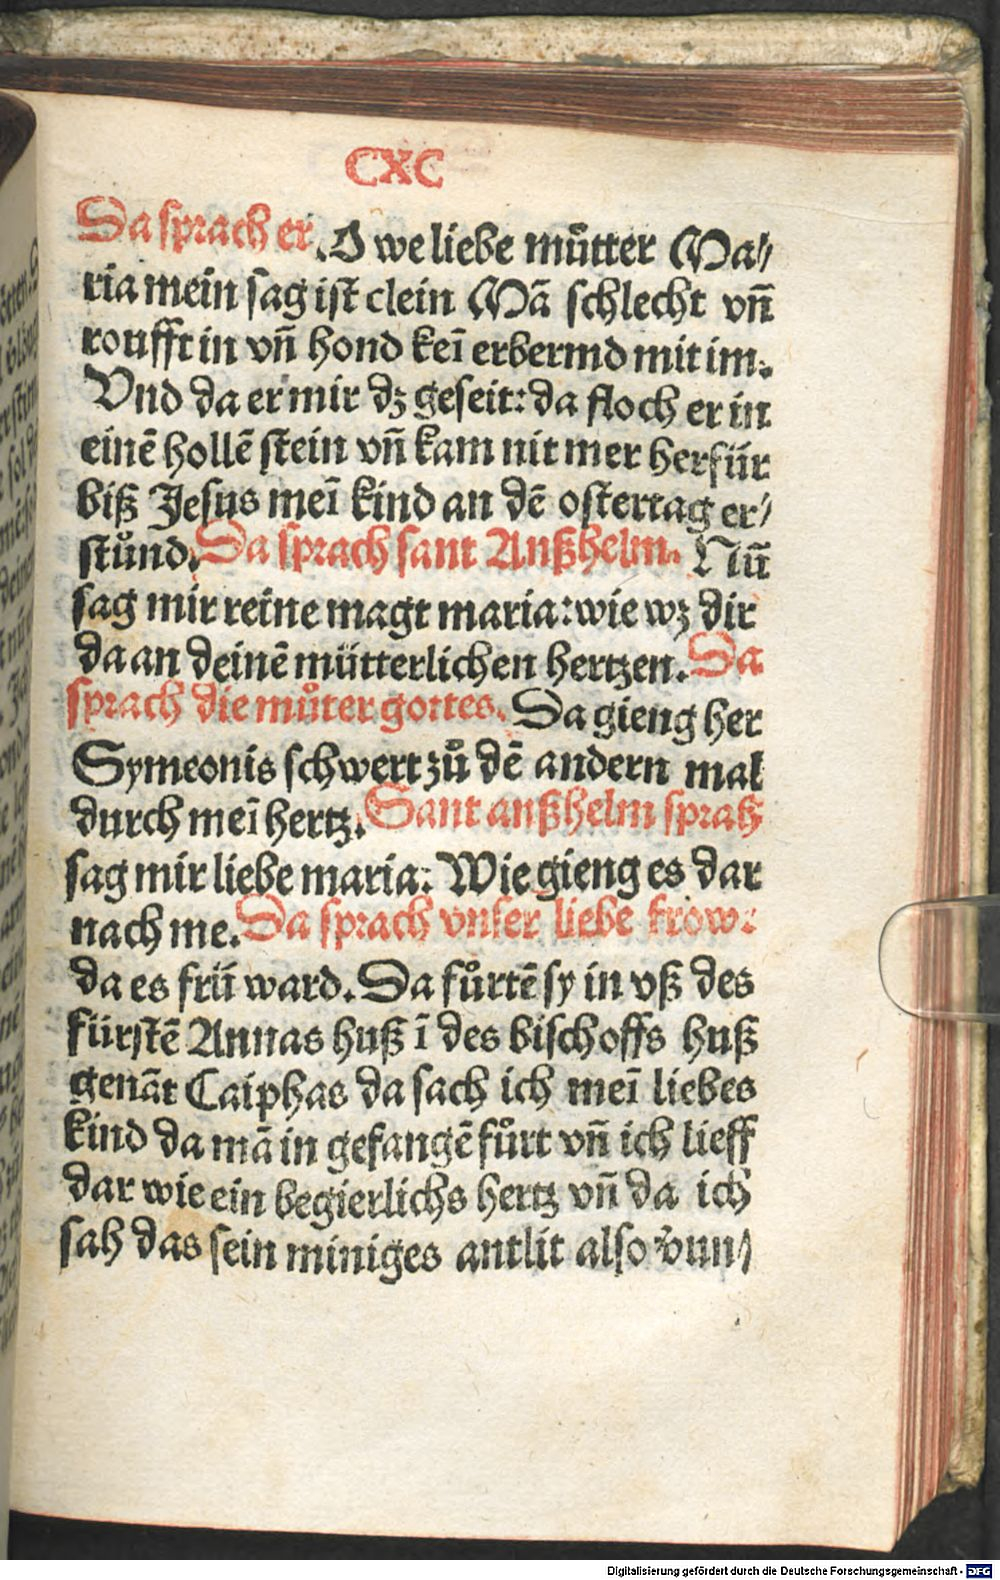 CXC
Da sprach er. O we liebe můtter Ma⸗
ria mein sag ist clein Mā schlecht vn̄
roufft in vn̄ hond keī erbermd mit im.
Vnd da er mir dz geseit: da floch er in
einē hollē stein vn̄ kam nit mer herfür
biß Jesus meī kind an dē ostertag er⸗
stůnd. Da sprach sant Anßhelm. Nun̄
sag mir reine magt maria: wie wz dir
da an deinē mütterlichen hertzen. Da
sprach die můter gottes. Da gieng her
Symeonis schwert zů dē andern mal
durch meī hertz. Sant anßhelm sprach
sag mir liebe maria: Wie gieng es dar
nach me. Da sprach vnser liebe frow:
da es frü ward. Da fůrtē sy in vß des
fürstē Annas huß ī des bischoffs huß
genāt Caiphas da sach ich meī liebes
kind da mā in gefangē fůrt vn̄ ich lieff
dar wie ein begierlichs hertz vn̄ da ich
sah das sein miniges antlit also vun⸗
Digitalisierung gefördert durch die Deutsche Forschungsgemeinschaft - DFG